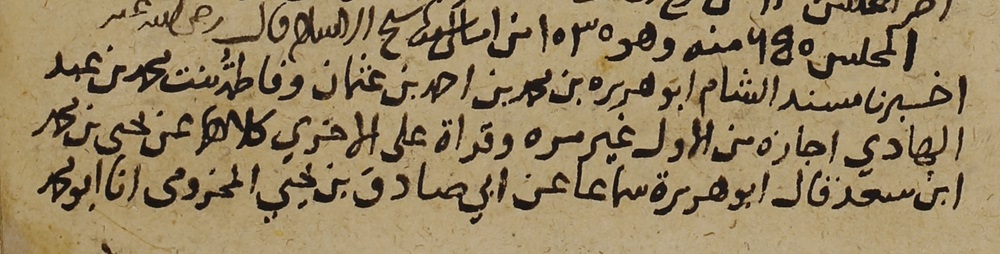 المجلس ٦٤٥ منه وهو ١٠٣٥ من امالي شيخ الاسلام قال رضي الله عنه
اخبرنا مسند الشام ابو هريره بن محمد بن احمد بن عثمان وفاطمة بنت محمد بن عبد
الهادي اجازه من الاول غير مره وقراة على الاخرى كلاهما عن يحيى بن محمد
ابن سعد قال ابو هريرة سماعا عن ابي صادق بن يحيي المخزومى انا ابو محمد